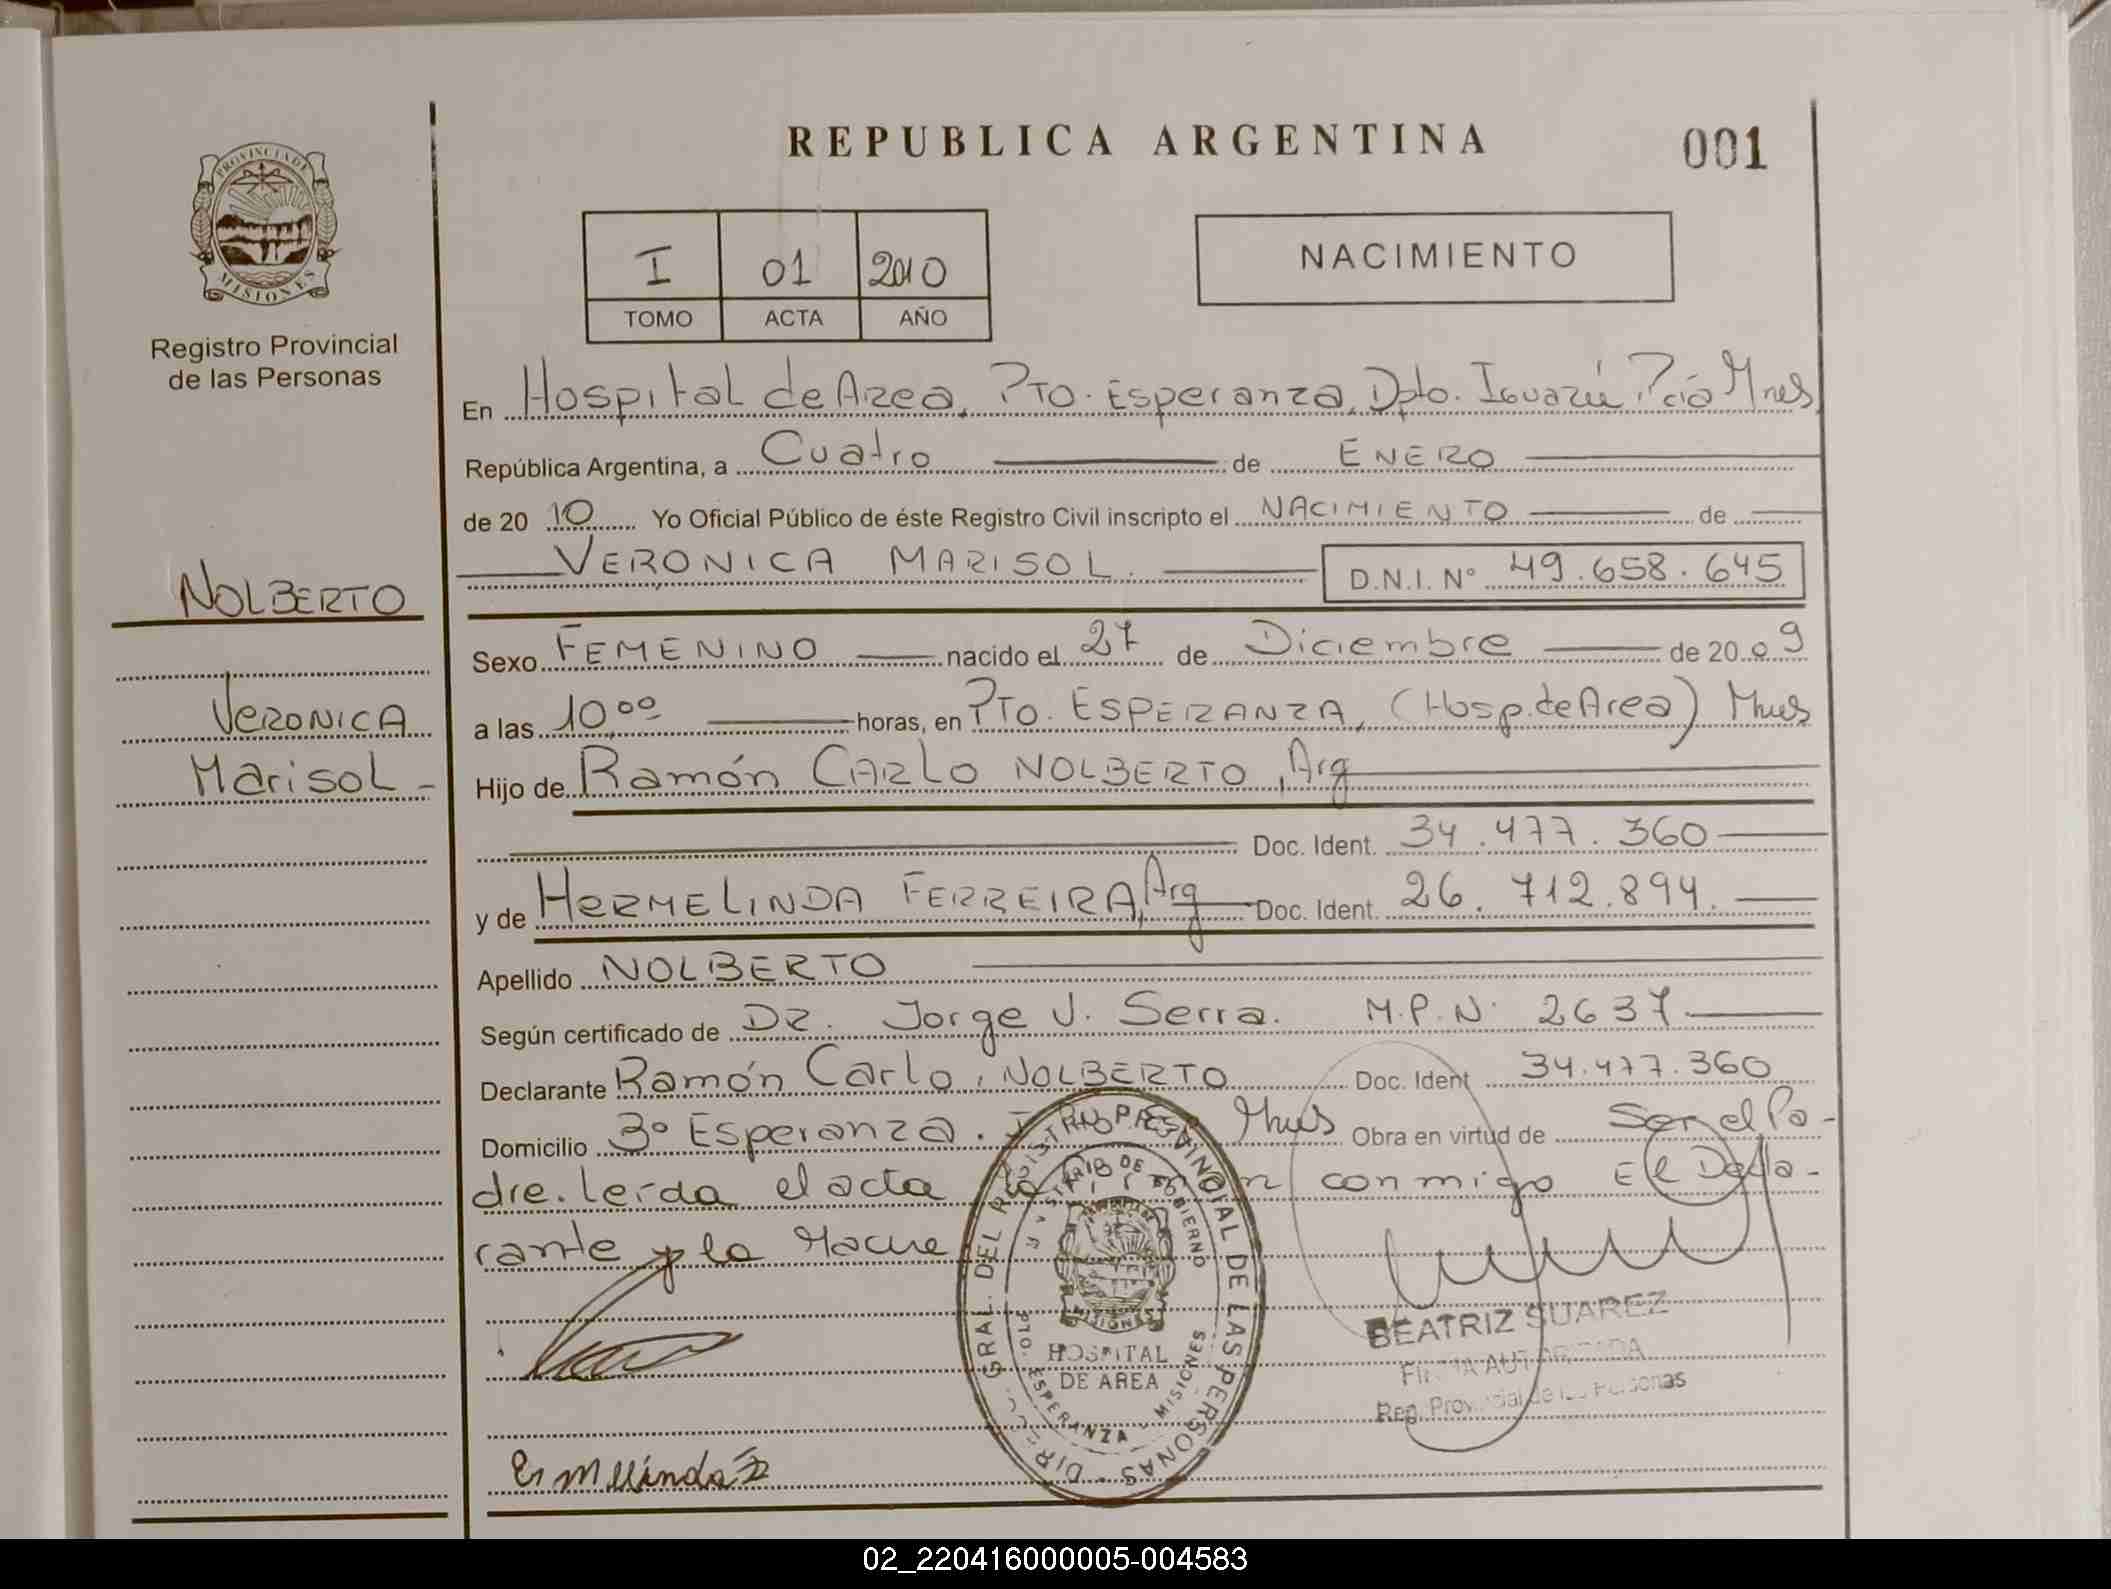 REPUBLICA ARGENTINA
001
PROVINCIA DE
MISIONES
Registro Provincial
de las Personas
I 01 2010
TOMO ACTA AÑO
NACIMIENTO
En Hospital de Area, Pto. Esperanza, Dpto. Iguazú Pcia Mnes
República Argentina, a Cuatro de ENERO
de 20 10 Yo Oficial Público de éste Registro Civil inscripto el NACIMIENTO de
VERONICA MARISOL. D.N.I. N° 49.658.645
NOLBERTO
VERONICA
Marisol -
Sexo FEMENINO nacido el 27 de Diciembre de 20 09
a las 10,00 horas, en Pto. ESPERANZA, (Hosp. de Area) Mnes
Hijo de Ramón CARLO NOLBERTO, Arg
Doc. Ident. 34.477.360
y de HERMELINDA FERREIRA, Arg Doc. Ident. 26.712.894.
Apellido NOLBERTO
Según certificado de DR. Jorge J. Serra. M.P.N. 2637
Declarante Ramón Carlo, NOLBERTO Doc. Ident 34.477.360
Domicilio Bº Esperanza. Mnes Obra en virtud de Ser el Pa-
dre. Leída el acta conmigo El Decla-
rante y la Madre
DIR. GRAL. DEL REGISTRO PROVINCIAL DE LAS PERSONAS
MINISTERIO DE GOBIERNO
MISIONES
HOSPITAL
DE AREA
PTO. ESPERANZA - MISIONES
BEATRIZ SUAREZ
FIRMA AUTORIZADA
Reg. Provincial de las Personas
02_220416000005-004583